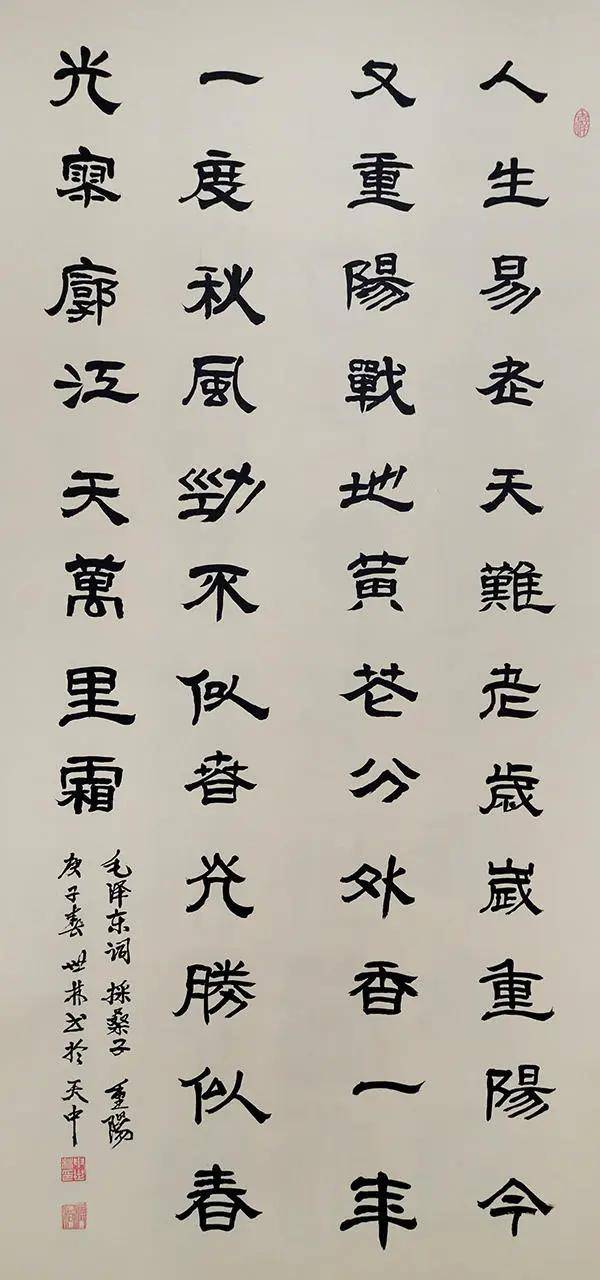 人生易老天難老歲歲重陽今
又重陽戰地黃花分外香一年
一度秋風勁不似春光勝似春
光寥廓江天萬里霜
毛泽东词 採桑子 重陽
庚子春世林书於天中